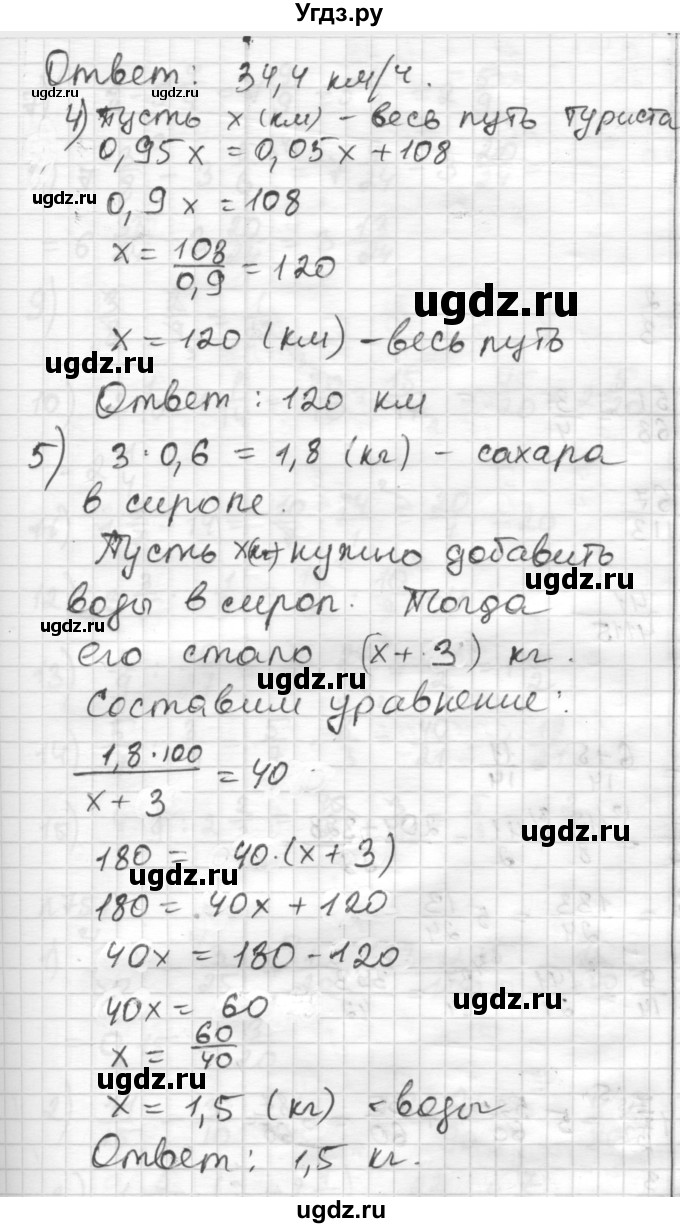 Угдз.ру
Ответ: 34,4 км/ч.
ugdz.ru
4) Пусть x (км) - весь путь туриста
ugdz.ru
0,95x = 0,05x + 108
ugdz.ru
0,9x = 108
x = 108/0,9 = 120
ugdz.ru
x = 120 (км) - весь путь
ugdz.ru
Ответ: 120 км
5) 3·0,6 = 1,8 (кг) - сахара
в сиропе.
Пусть x(кг) нужно добавить
ugdz.ru
воды в сироп. Тогда
ugdz.ru
его стало (x + 3) кг.
ugdz.ru
Составим уравнение:
1,8·100/x + 3 = 40
ugdz.ru
180 = 40·(x + 3)
ugdz.ru
180 = 40x + 120
40x = 180 - 120
ugdz.ru
40x = 60
x = 60/40
ugdz.ru
x = 1,5 (кг) - воды
Ответ: 1,5 кг.
ugdz.ru